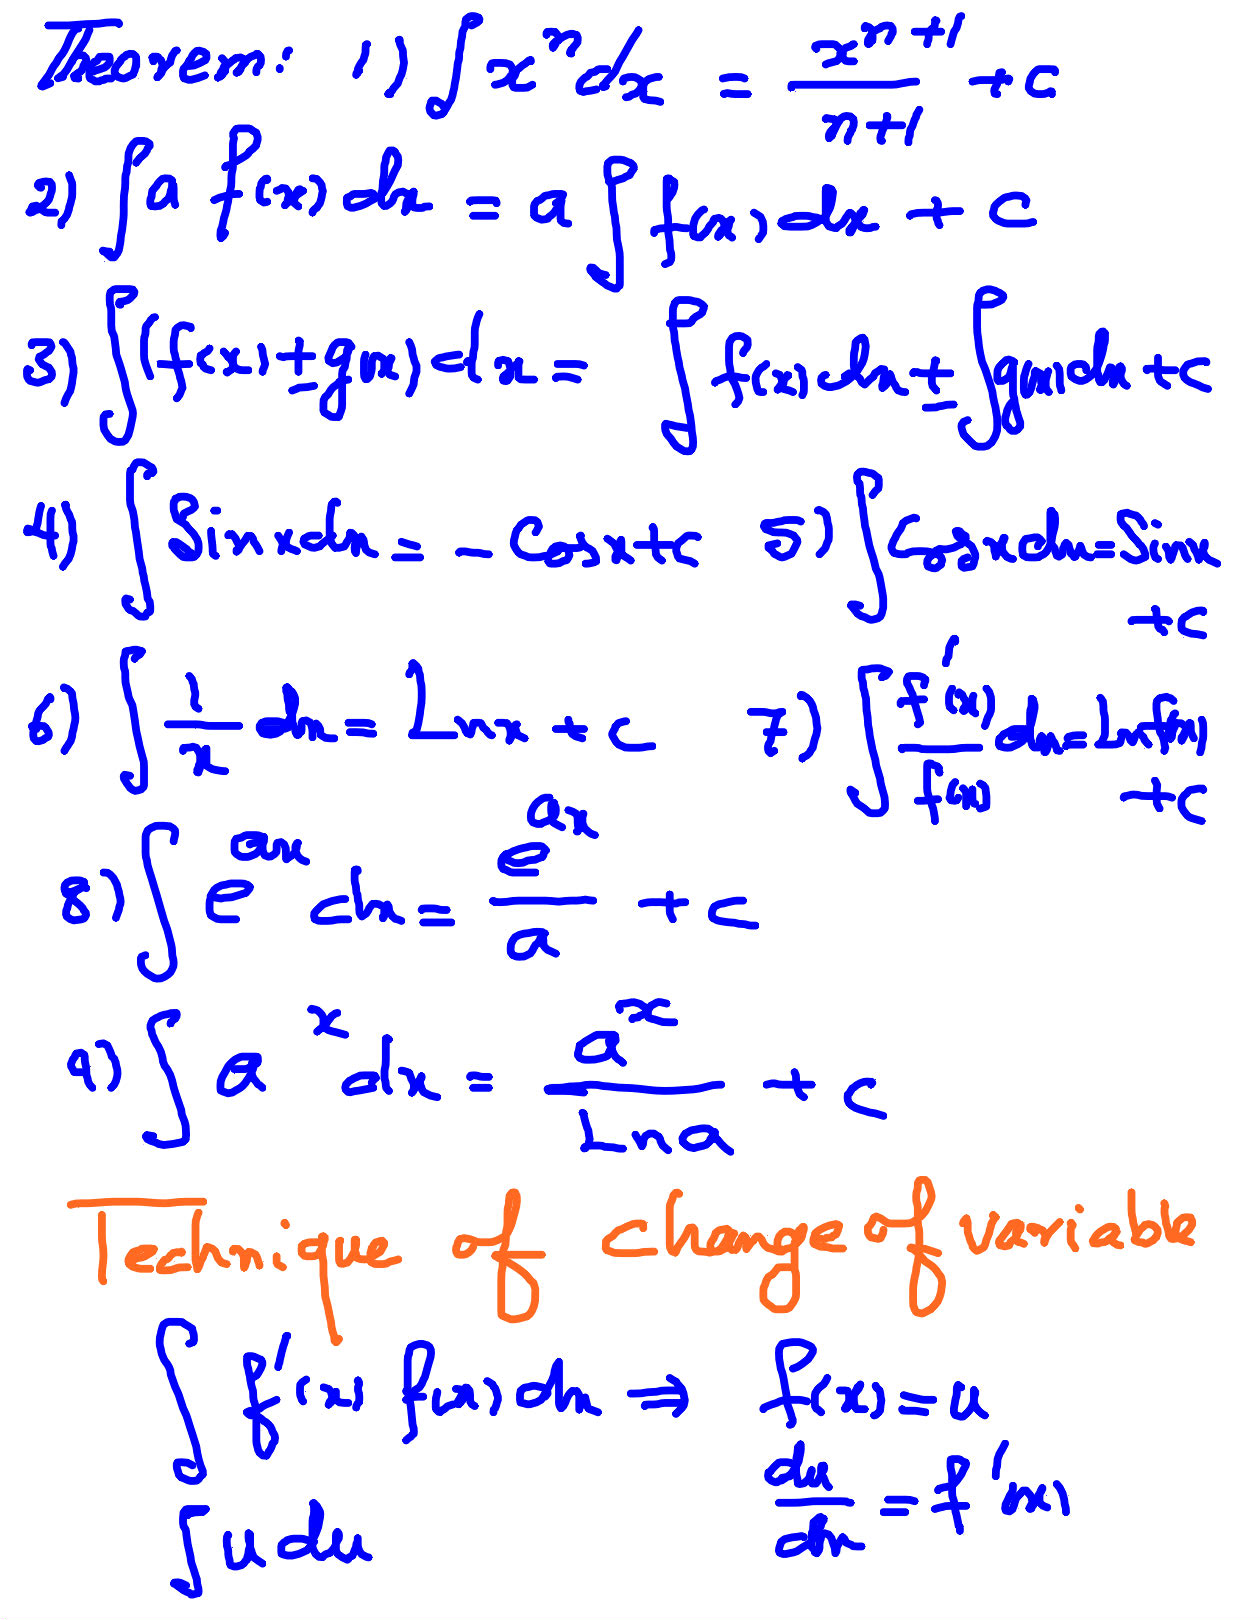 Theorem: 1) ∫ xⁿ dx = xⁿ⁺¹/(n+1) + c
2) ∫ a f(x) dx = a ∫ f(x) dx + c
3) ∫ (f(x) ± g(x)) dx = ∫ f(x) dx ± ∫ g(x) dx + c
4) ∫ Sin x dx = - Cos x + c 5) ∫ Cos x dx = Sin x + c
6) ∫ 1/x dx = Ln x + c 7) ∫ f'(x)/f(x) dx = Ln f(x) + c
8) ∫ e^(ax) dx = e^(ax)/a + c
9) ∫ a^x dx = a^x/Ln a + c
Technique of change of variable
∫ f'(x) f(x) dx ⇒ f(x) = u
∫ u du du/dx = f'(x)